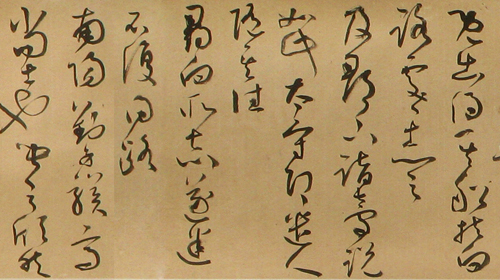 既出得其船扶向
路處處志之
及郡下詣守說
如此太守即遣人
隨其往
尋向所志遂迷
不復得路
南陽劉子驥高
尚士也聞之欣然